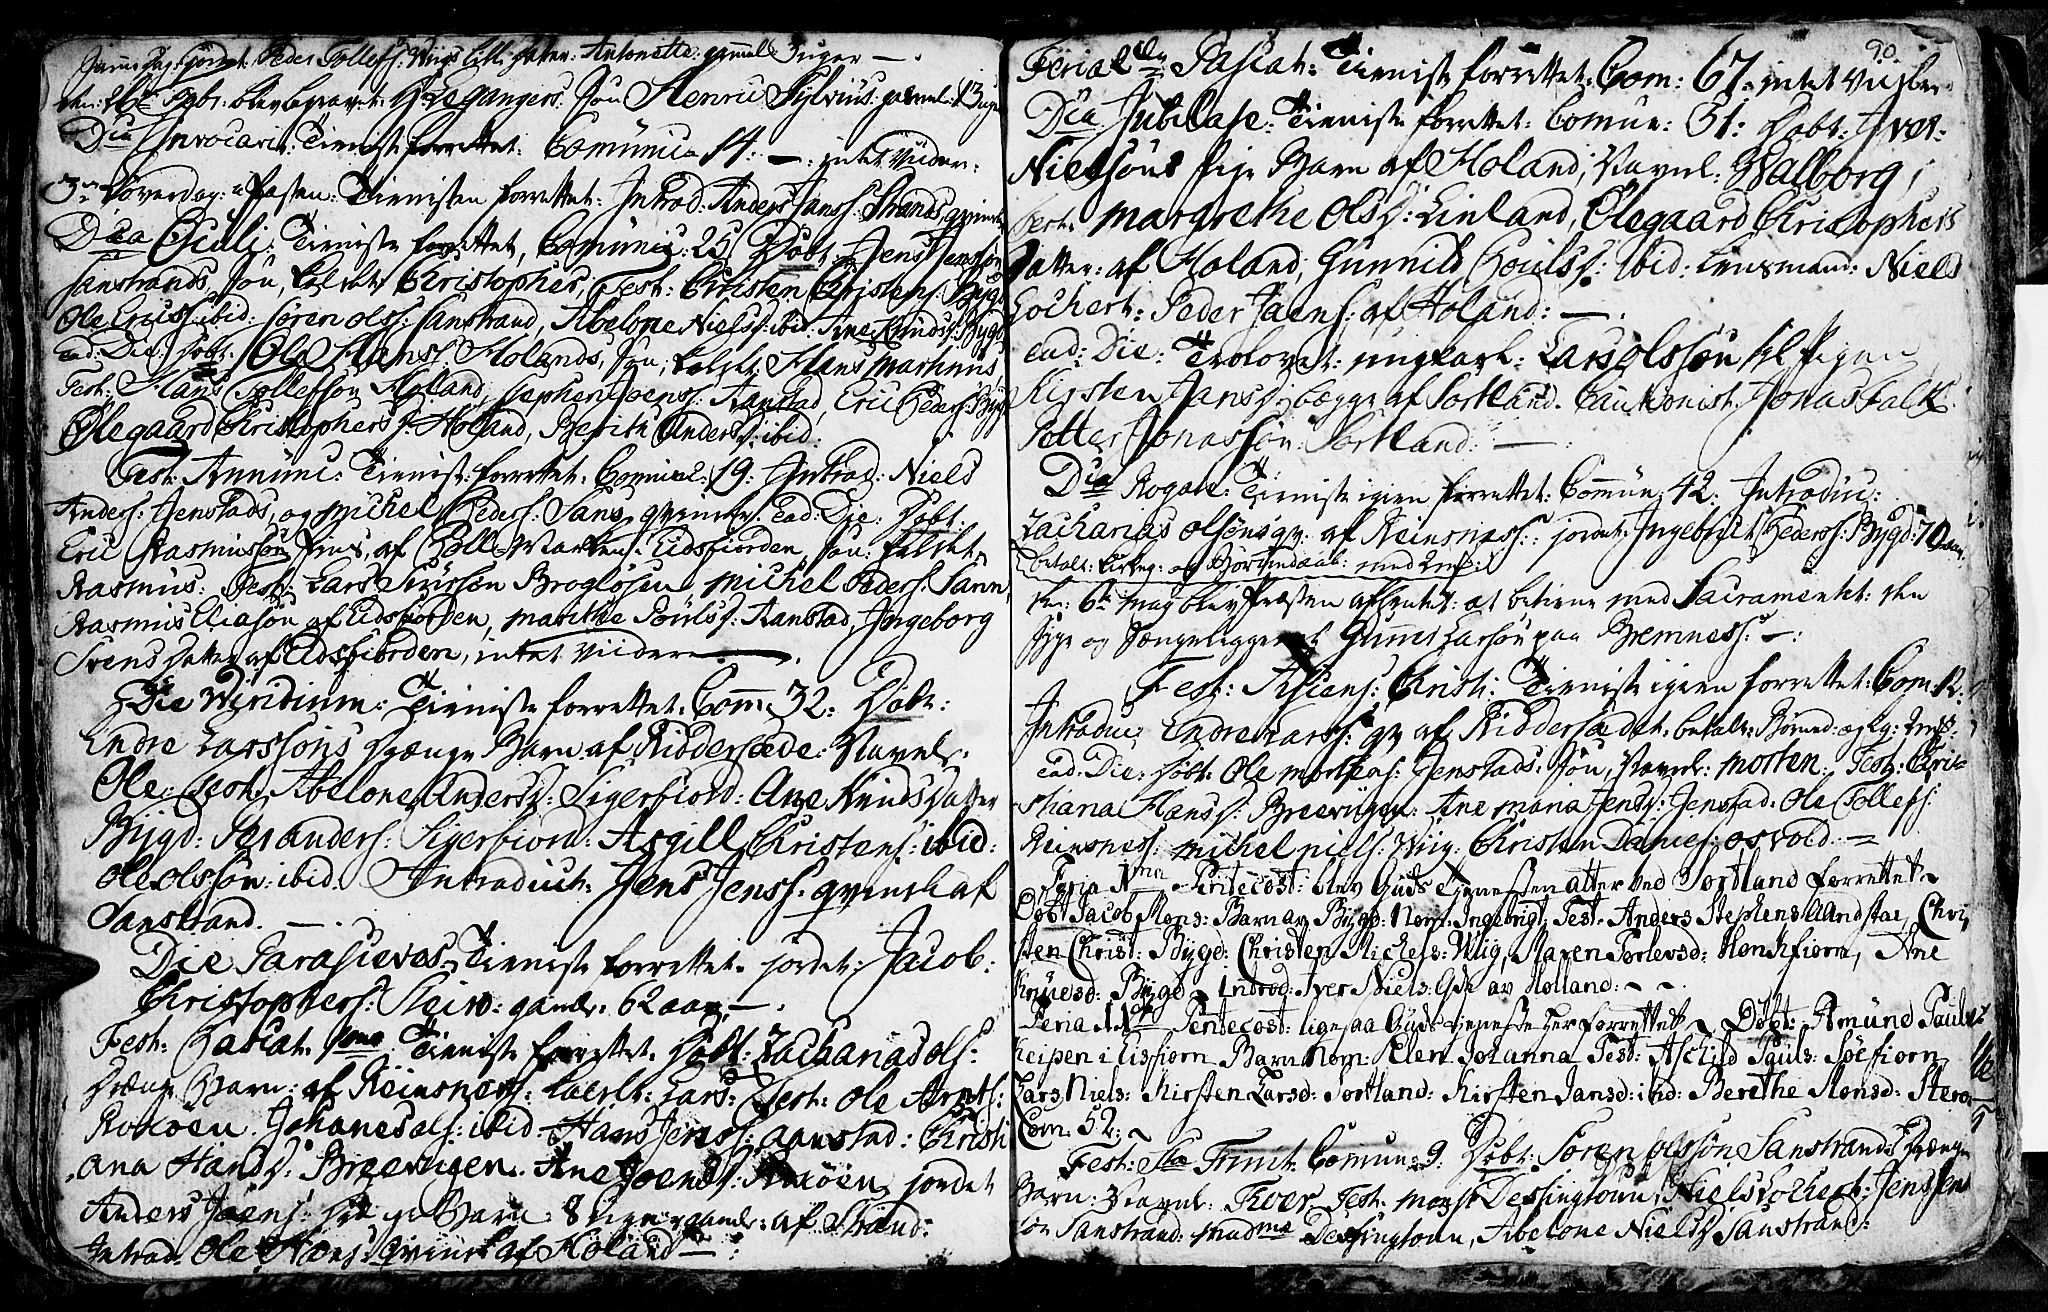 Samme dag jordet Peder Tollefs: Wiigs Lille datter Antonette: gamel 3 uger —
den: 26de Febr: blev begravet: H: Legangers: Søn Henric Sylvius: gamel: 13 uger
Dca Invocavit: Tienniste forrettet: Comunic 14: — : intet viider:
3die Løverdag: i fasten: Tiennisten forrettet: Introd: Anders Janss: Strands, qvinde
Dca Oculi: Tienniste forrettet, Comunic: 25 Døbt: Jens Jenssøn
Sanstrands Søn, kaldet Christopher, Test: Christen Christens: Bygd
Ole Erics: ibid: Søren Olss: Sanstrand, Abelone Nielsd: ibid: Ane Knudsd: Bygd
Ead: Die: Døbt: Ole Hans: Holands, Søn, kaldet Hans Martinus
Test: Hans Tollefsøn Holland, Stephen Joens: Aanstad, Eric Peders: Bygd
Ølegaard Christophersd: Holland, Berith Andersd: ibid:
Fest: Annunc: Tienniste forrettet: Comunic: 19: Introd: Niels
Anders: Jenstads, og Michel Peders: Sans qvinder: Ead: Die: Døbt:
Eric Rasmussøn af Eidsfiorden, Søn: kaldet
Rasmus: Test: Lars Siursøn Brogløsen, Michel Peders: Sann,
Rasmus Eliasøn af Eidsfiorden, Marithe Poulsd: Aanstad, Ingeborg
Svensdatter af Eidsfiorden, intet viidere —
Die Wiridium: Tienniste forrettet: Comm: 32: Døbt:
Endre Larssøns Drænge Barn af Riddersæde: Navnl:
Ole: Test: Abelone Andersd: Sigerfiord: Ane Knudsdatter
Bygd: Per Anders: Sigerfiord: Asgill Christens: ibid:
Ole Olssøn: ibid: Introduct: Jens Jenss: qvinde af
Sanstrand. —
Die Parasceves Tienniste forrettet. jordet: Jacob:
Christophers: Steiro: gaml: 62 aar, —
Fest: Pascat: 1ma Tienniste forrettet. Døbt: Zacharias Ols:
Drænge Barn: af Reinsnes: kaldet: Lars: Test: Ole Arnts:
Roköen. Johanes Ols: ibid: Hans Jenss: Aanstad: Christi
ana Hansd: Breeviigen. Ane Joensd: Roköen, jordet
Anders Joens: Barn: 8 uger gaml: af Strand:
Introd: Ole Hans: qvinde af Holand —:
90.
Feria 2da Pascat: Tienniste forrettet: Com: 67: intet viidere
Dca Jubilate: Tienniste forrettet: Comun: 31: Døbt: Iver:
Nielsöns pige Barn af Holand, Navnl: Walborg;
Test: Margrethe Olsd: Linland, Ølegaard Christophers
Datter: af Holand, Gunnild Poulsd: ibid: Lensmand: Niels
Lochert: Peder Joens: af Holand: —.
Ead: Die: Trolovet: ungkarl: Lars Olssøn til Pigen
Kirsten Jansd: begge af Sortland. Cautionist: Jonas Falk
Potter Jonassøn Sortland: —
Dca Rogate: Tienniste igien forrettet: Comun: 42: Introduc:
Zacharias Olsöns qv: af Reinsness: jordet: Ingebrict Peders: Bygd: 70 aar,
betalt: kirkeg: og
den: 6te May blev Præsten afhentet: at betiene med Sacramentet: den
Syge og Sængeliggende Gunner Larsøn paa Bremness: —:
Fest: Ascens: Christi: Tienniste igien forrettet: Com: 12:
Introduc: Endre Lars: qv: af Riddersædet:
Ead: Die: Døbt: Ole Mortens: Jenstads: Søn, Navnl: Morten: Test: Chri-
stiana Hansd: Breeviigen: Ane Maria Jensd: Jenstad: Ole Tollefs:
Reinsness: Michel Niels: Wiig: Christen Daniels: Osvold: —
Feria 1ma Pentecost: blev Guds tienesten atter ved Sortland forrettet:
Døbt Jacob Mons: Barn av Bygd: Nom: Ingebrigt: Test: Anders Stephens Aandstad, Chri-
sten Christ: Bygd: Christen Michels: Wiig, Maren Torlevsd: Honkfiorn, Ane
Knuesd: Bygd: Introd: Iver Niels: qde av Holland: —
Feria 2da Pentecost: ligesaa Guds tieneste her forrettet: Døbt: Amund Pauls:
Keipen i Eisfiorn Barn Nom: Elen Johanna Test: Aschild Pauls: Söefiorn
Lars Niels: Kirsten Larsd: Sortland: Kirsten Jansd: ibid: Berethe Monsd: Steroe
Com: 52:
Fest: Stæ Trinit: Comun: 9: Døbt: Søren Olssøn Sanstrands Drænge
Barn: Navnl: Test: Monsr Dessingtoun, Niels Lochert: Jens Jens
søn Sanstrand: Madme Dessingtoun, Abelone Nielsd: Sanstrand: